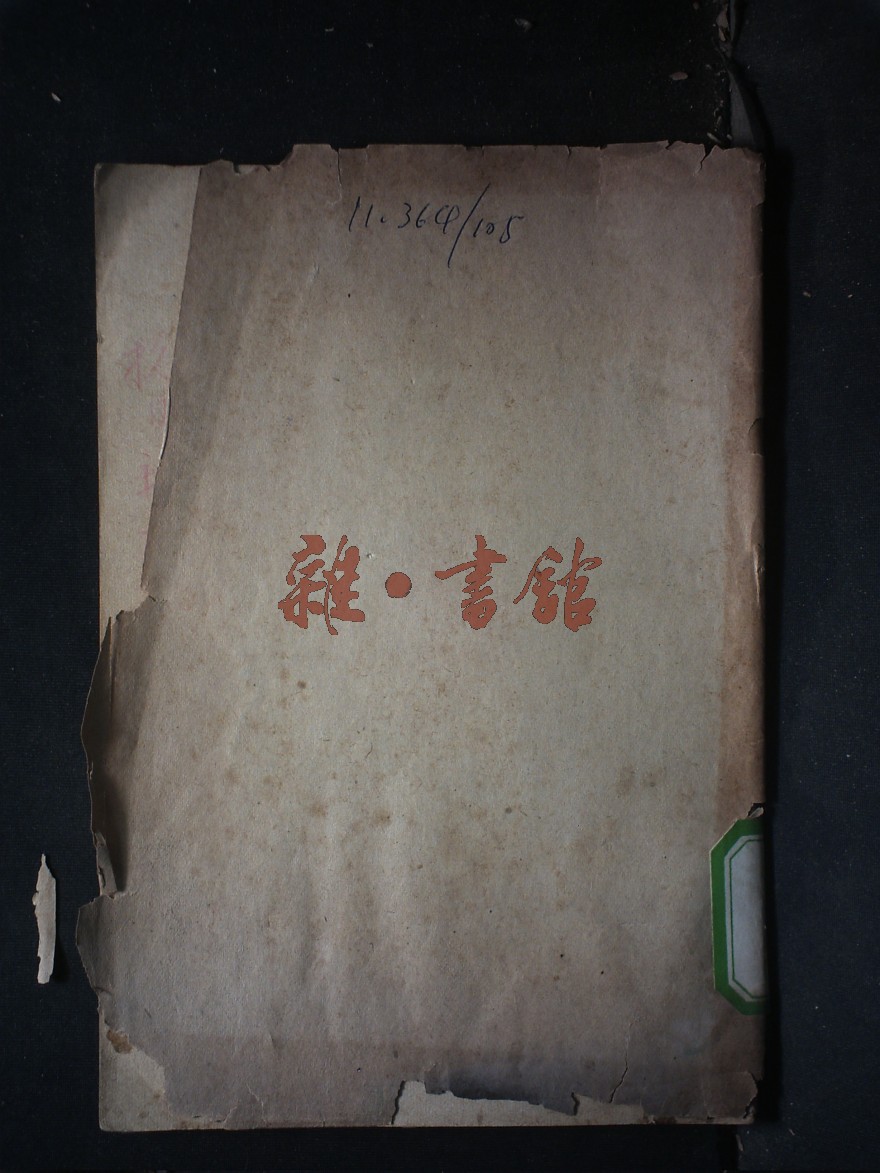 11.364/105
雜·書館